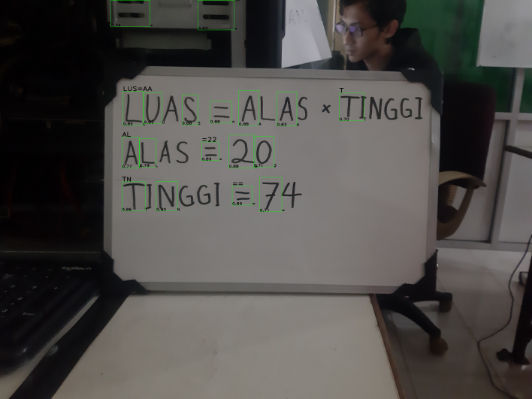 LUS=AA T
LUAS = ALAS × TINGGI
AL =22
ALAS = 20
TN ==
TINGGI = 74